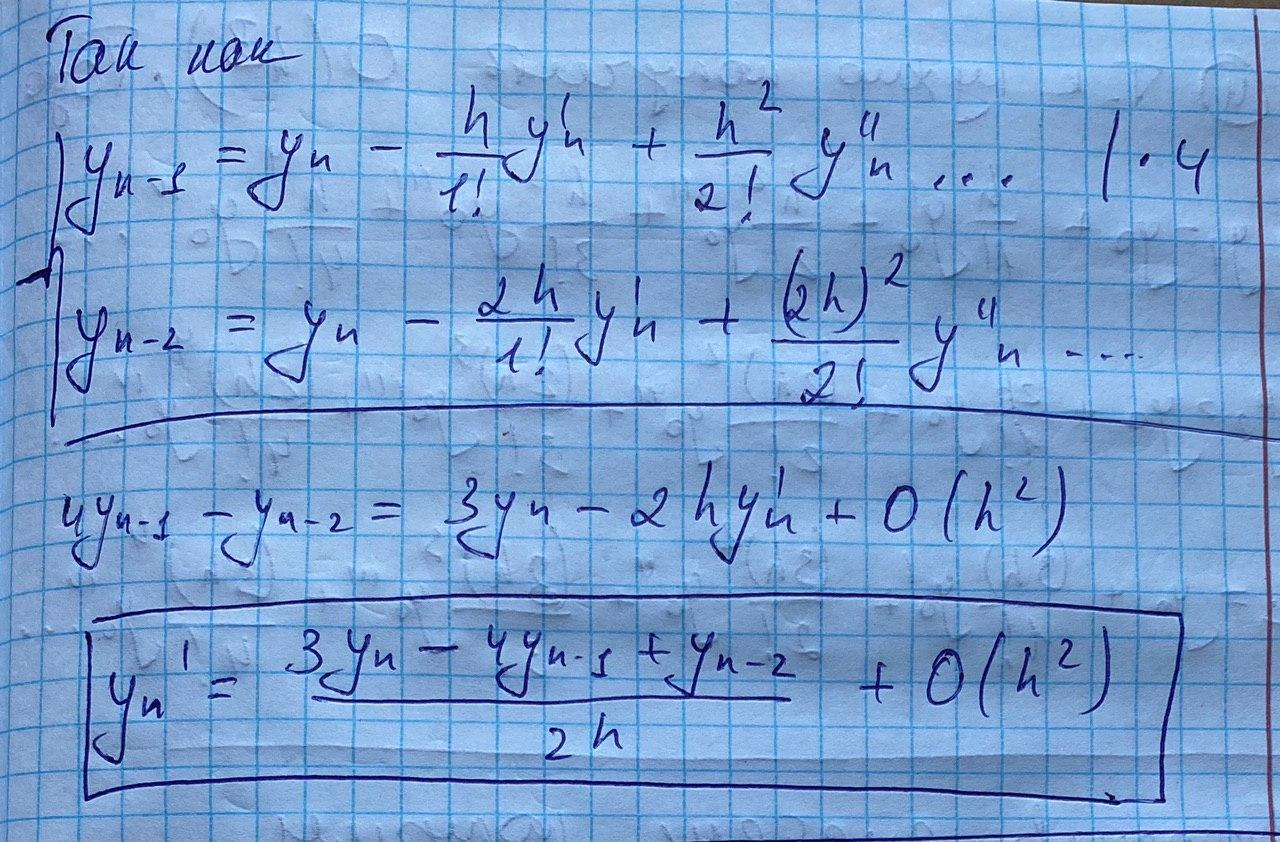 Так как
y_{n-1} = y_n - \frac{h}{1!} y'_n + \frac{h^2}{2!} y''_n ... | · 4
y_{n-2} = y_n - \frac{2h}{1!} y'_n + \frac{(2h)^2}{2!} y''_n ...
4y_{n-1} - y_{n-2} = 3y_n - 2hy'_n + O(h^2)
y_n' = \frac{3y_n - 4y_{n-1} + y_{n-2}}{2h} + O(h^2)